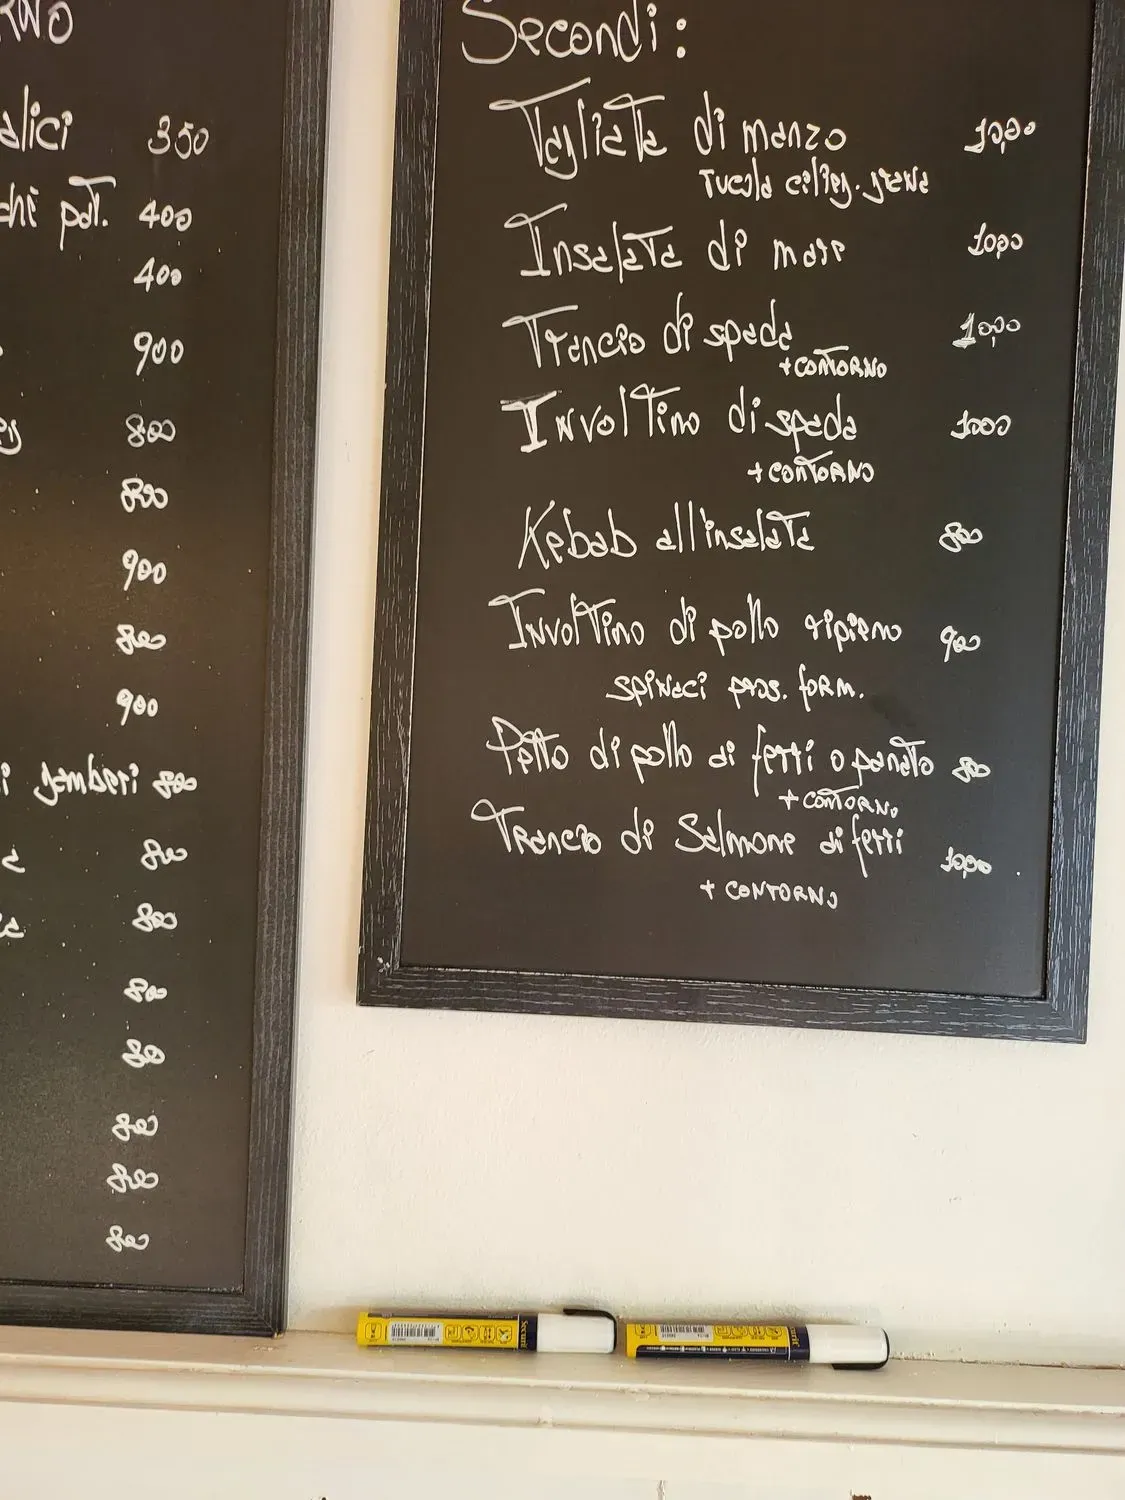 RNO
alici 350
chi pat. 400
400
900
800
800
900
800
900
i gamberi 800
a 800
800
800
800
800
800
800
Secondi:
Tagliata di manzo 10,00
rucola cilieg. grana
Insalata di mare 10,00
Trancio di spada 10,00
+ CONTORNO
Involtino di spada 1000
+ CONTORNO
Kebab all'insalata 800
Involtino di pollo ripieno 900
SPINACI PROS. FORM.
Petto di pollo ai ferri o panato 800
+ CONTORNO
Trancio di Salmone ai ferri 10,00
+ CONTORNO
Securit